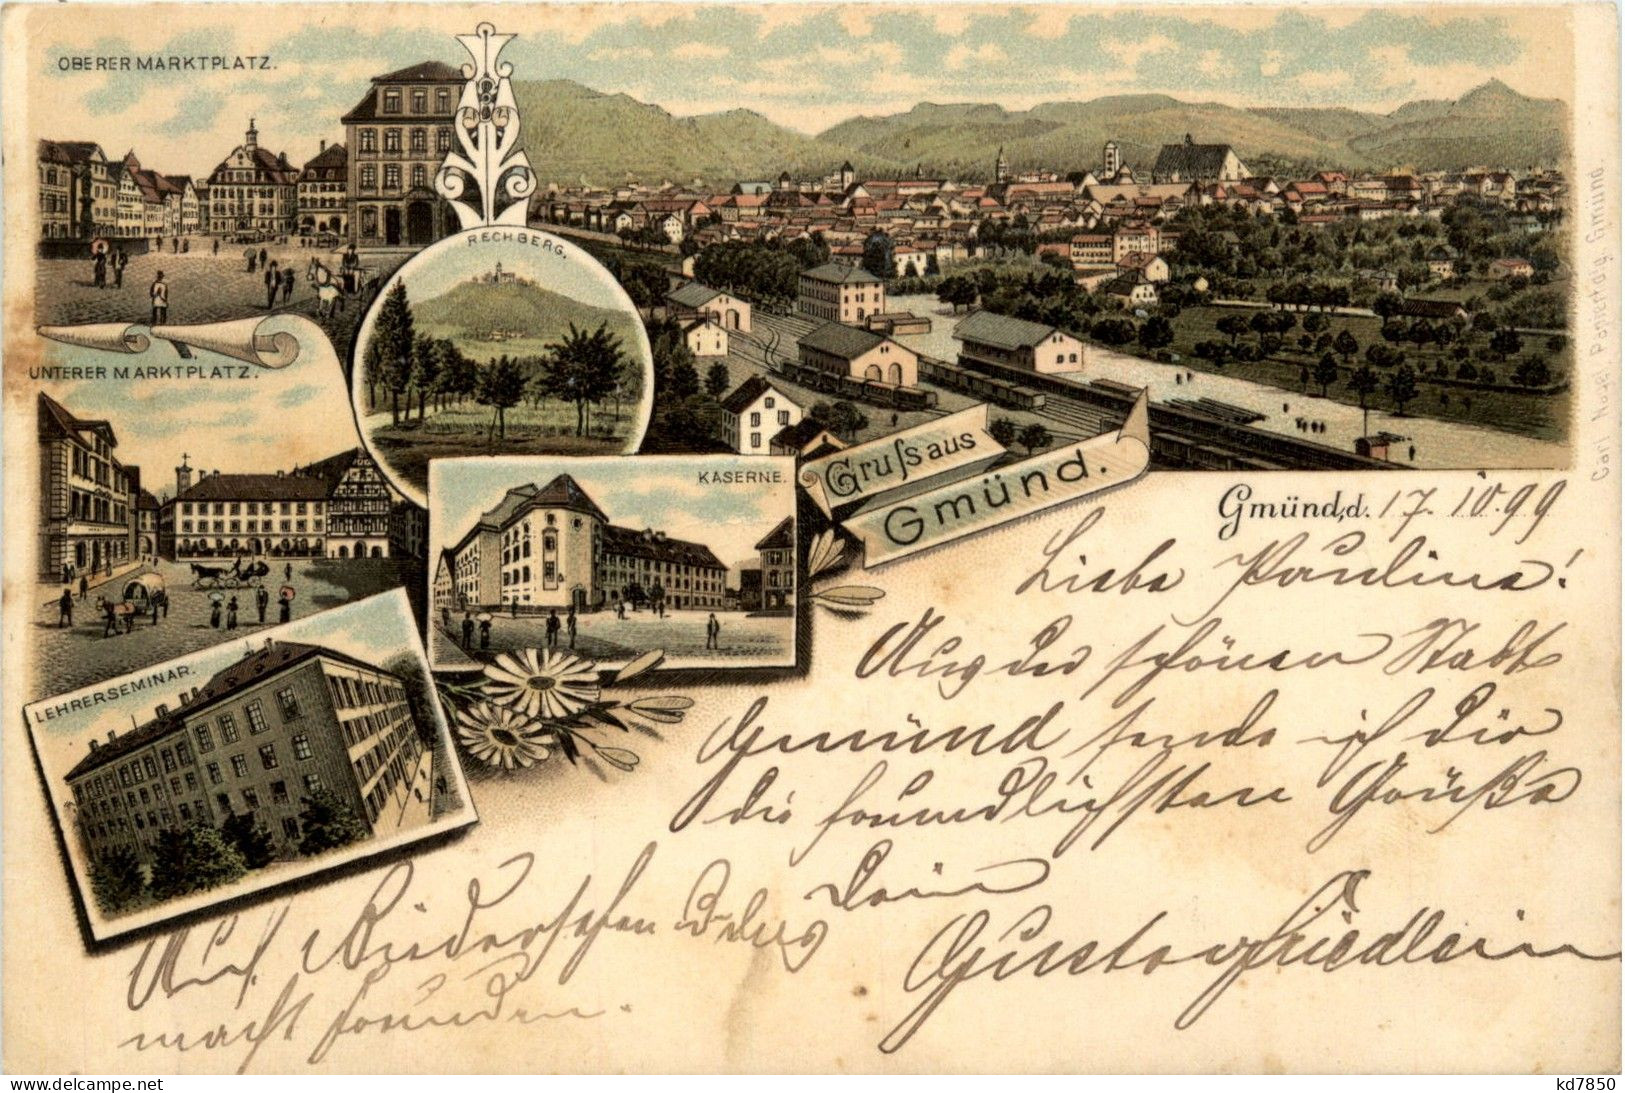 OBERER MARKTPLATZ.
RECHBERG.
UNTERER MARKTPLATZ.
KASERNE.
LEHRERSEMINAR.
Gruſs aus
Gmünd.
Gmünd, d. 17. 10. 99
Liebe Pauline!
Aus der schönen Stadt
Gmünd sende ich dir
die freundlichsten Grüße
Dein
Gustav Friedlein
Auf Wiedersehen
macht Freunden.
Carl Nagel
Gmünd.
kd7850